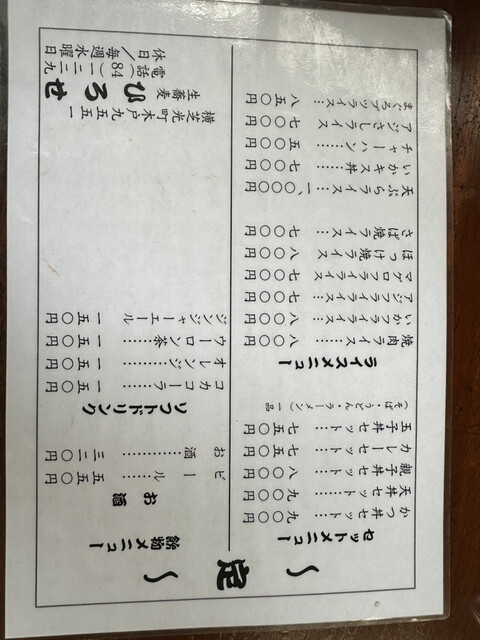 〜 定 〜
セットメニュー
かつ丼セット…九〇〇円
天丼セット……九〇〇円
親子丼セット…八〇〇円
カレーセット…七五〇円
玉子丼セット…七五〇円
（そば・うどん・ラーメン）一品
ライスメニュー
焼肉ライス……八〇〇円
いかフライライス 八〇〇円
アジフライライス 七〇〇円
マグロフライライス 七〇〇円
ほっけ焼ライス 八〇〇円
さば焼ライス…七〇〇円
天ぷらライス…一、〇〇〇円
いかキス丼……七〇〇円
チャーハン……五〇〇円
アジさしライス 七〇〇円
まぐろブツライス…八五〇円
飲物メニュー
お酒
ビール………五五〇円
お酒…………三二〇円
ソフトドリンク
コカコーラ……一五〇円
オレンジ………一五〇円
ウーロン茶……一五〇円
ジンジャーエール 一五〇円
横芝光町木戸九五五一
生蕎麦 ひろせ
電話(84)一二二九
休日／毎週水曜日